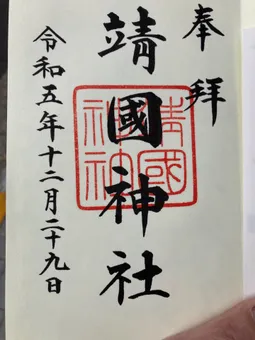 奉拜
靖國神社
令和五年十二月二十九日
靖國
神社